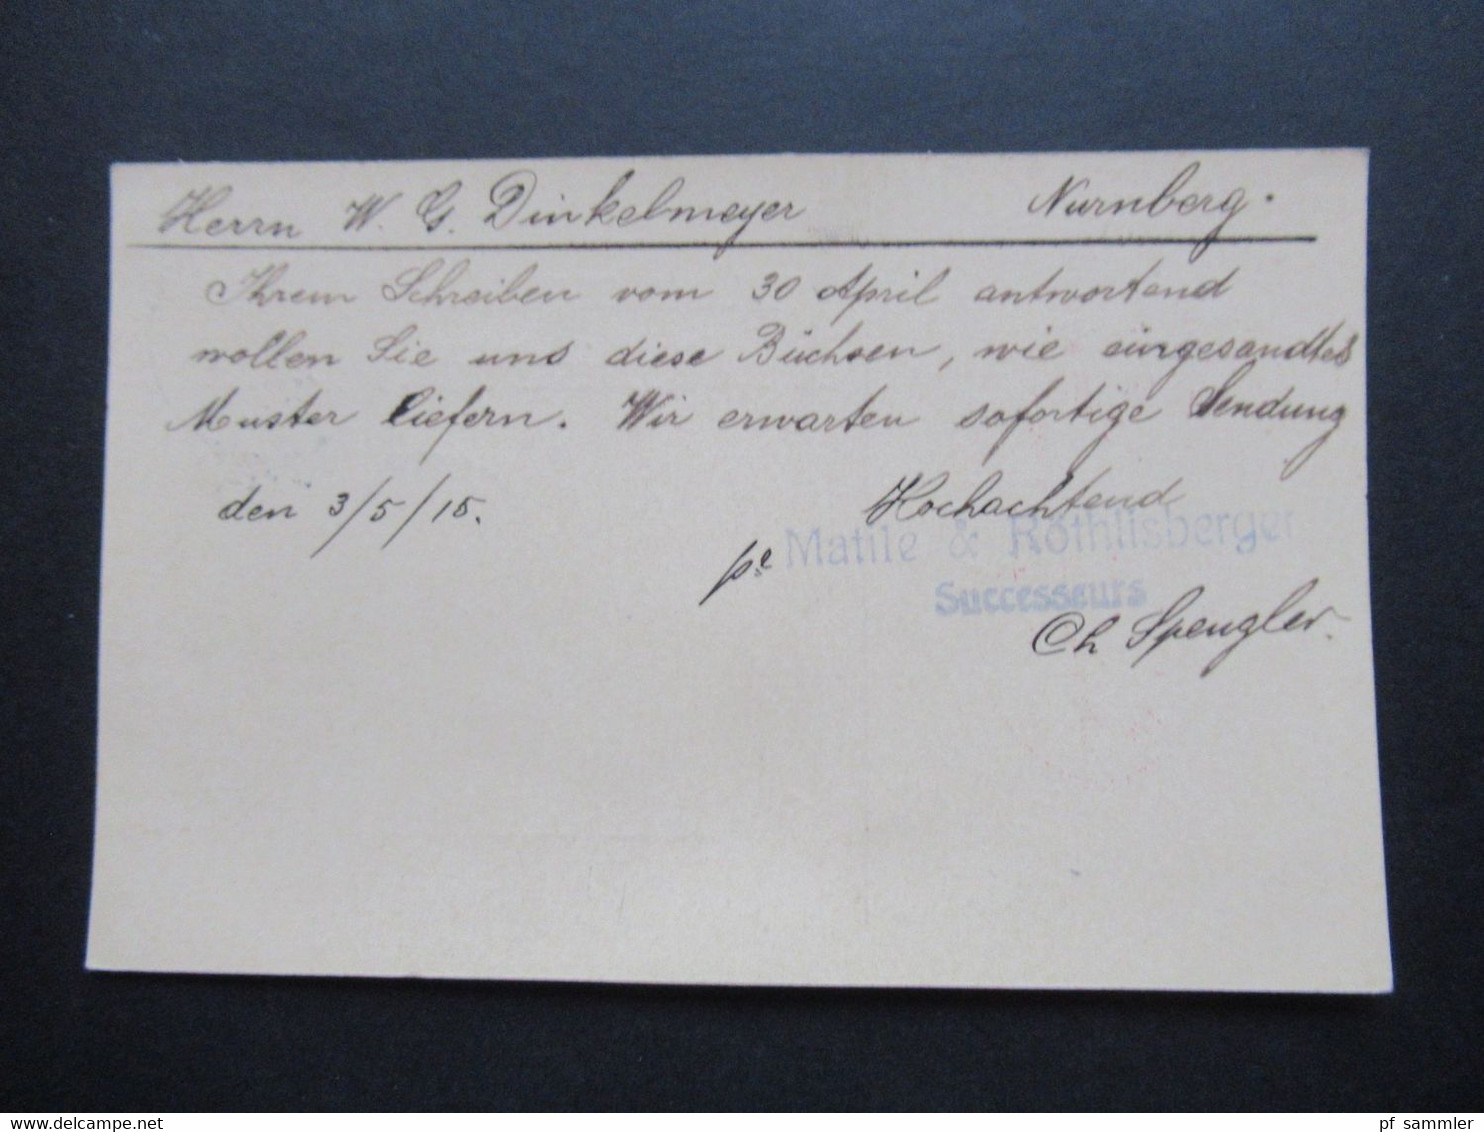 Herrn W. G. Dinkelmeyer Nurnberg.
Ihrem Schreiben vom 30 April antwortend
wollen Sie uns diese Büchsen, wie eingesandtes
Muster liefern. Wir erwarten sofortige Sendung
den 3/5/15. Hochachtend
pe Matile & Röthlisberger
Successeurs
Ch Spengler.
www.delcampe.net
pf_sammler